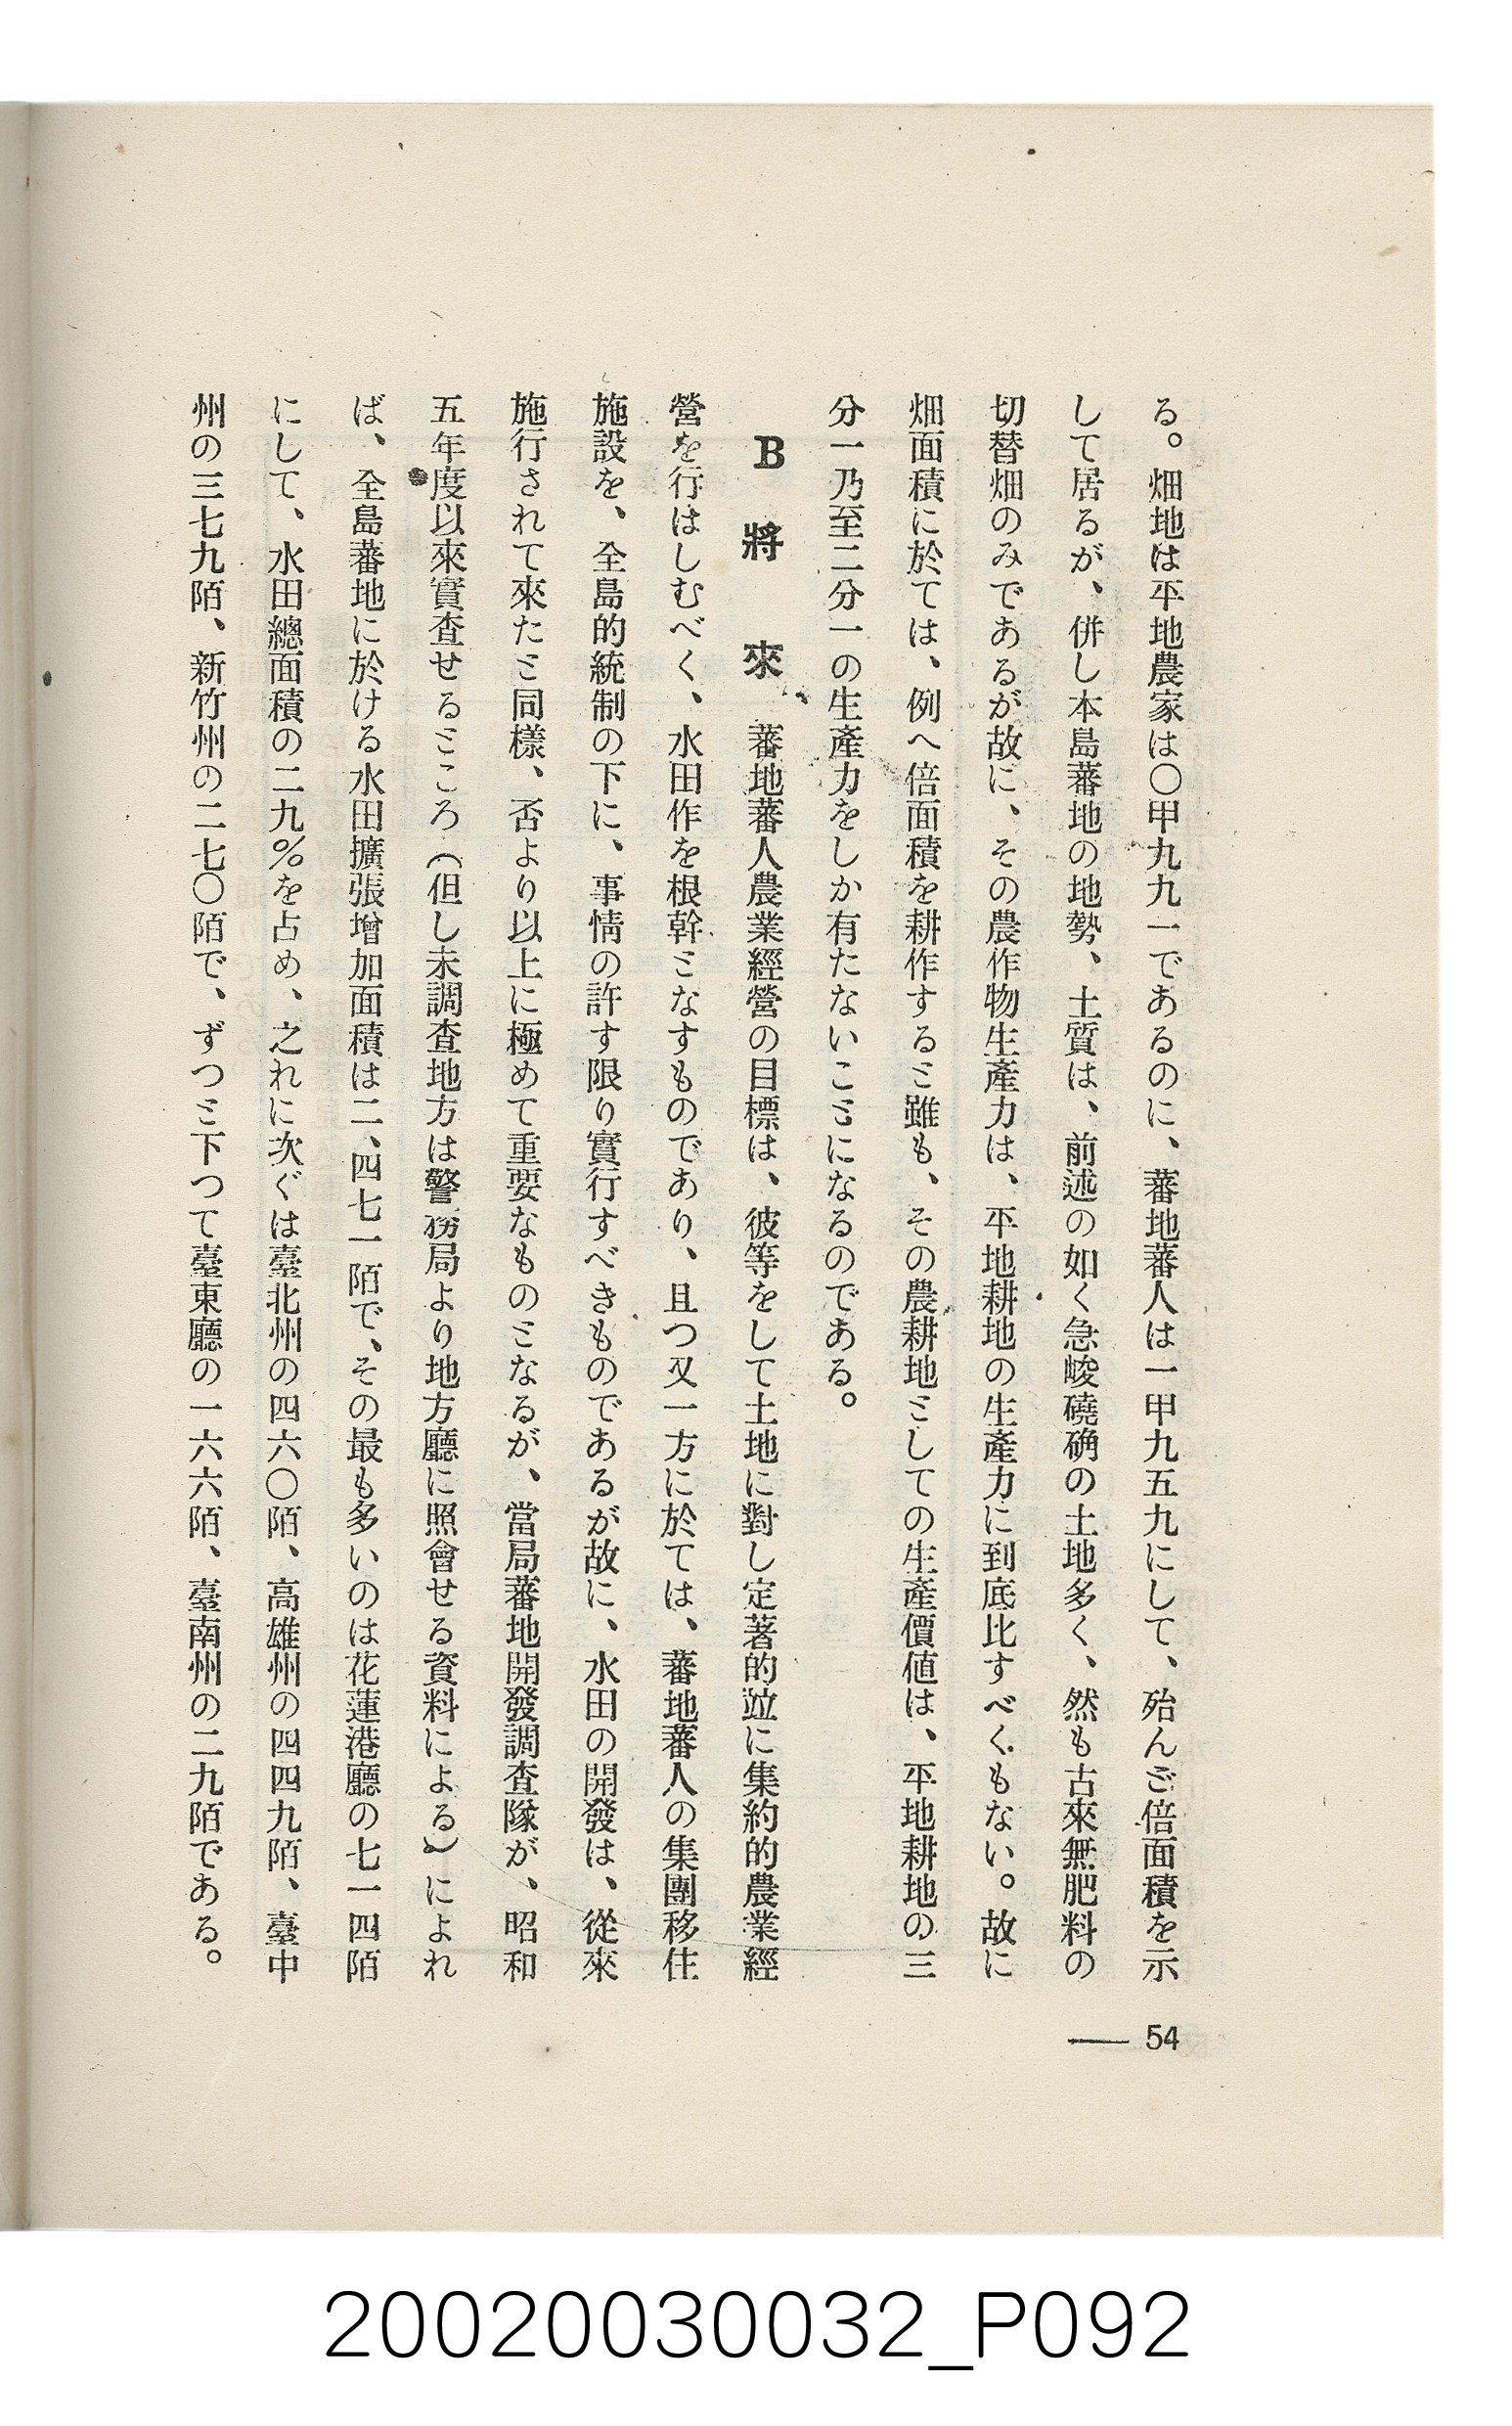 る。畑地は平地農家は〇甲九九一であるのに、蕃地蕃人は一甲九五九にして、殆んど倍面積を示
して居るが、併し本島蕃地の地勢、土質は、前述の如く急峻磽确の土地多く、然も古來無肥料の
切替畑のみであるが故に、その農作物生產力は、平地耕地の生產力に到底比すべくもない。故に
畑面積に於ては、例へ倍面積を耕作すると雖も、その農耕地としての生產價値は、平地耕地の三
分一乃至二分一の生產力をしか有たないことになるのである。
B 將來 蕃地蕃人農業經營の目標は、彼等をして土地に對し定著的竝に集約的農業經
營を行はしむべく、水田作を根幹となすものであり、且つ又一方に於ては、蕃地蕃人の集團移住
施設を、全島的統制の下に、事情の許す限り實行すべきものであるが故に、水田の開發は、從來
施行されて來たと同樣、否より以上に極めて重要なものとなるが、當局蕃地開發調査隊が、昭和
五年度以來實査せるところ(但し未調査地方は警務局より地方廳に照會せる資料による)によれ
ば、全島蕃地に於ける水田擴張增加面積は二、四七一陌で、その最も多いのは花蓮港廳の七一四陌
にして、水田總面積の二九%を占め、之れに次ぐは臺北州の四六〇陌、高雄州の四四九陌、臺中
州の三七九陌、新竹州の二七〇陌で、ずつと下つて臺東廳の一六六陌、臺南州の二九陌である。
— 54
20020030032_P092